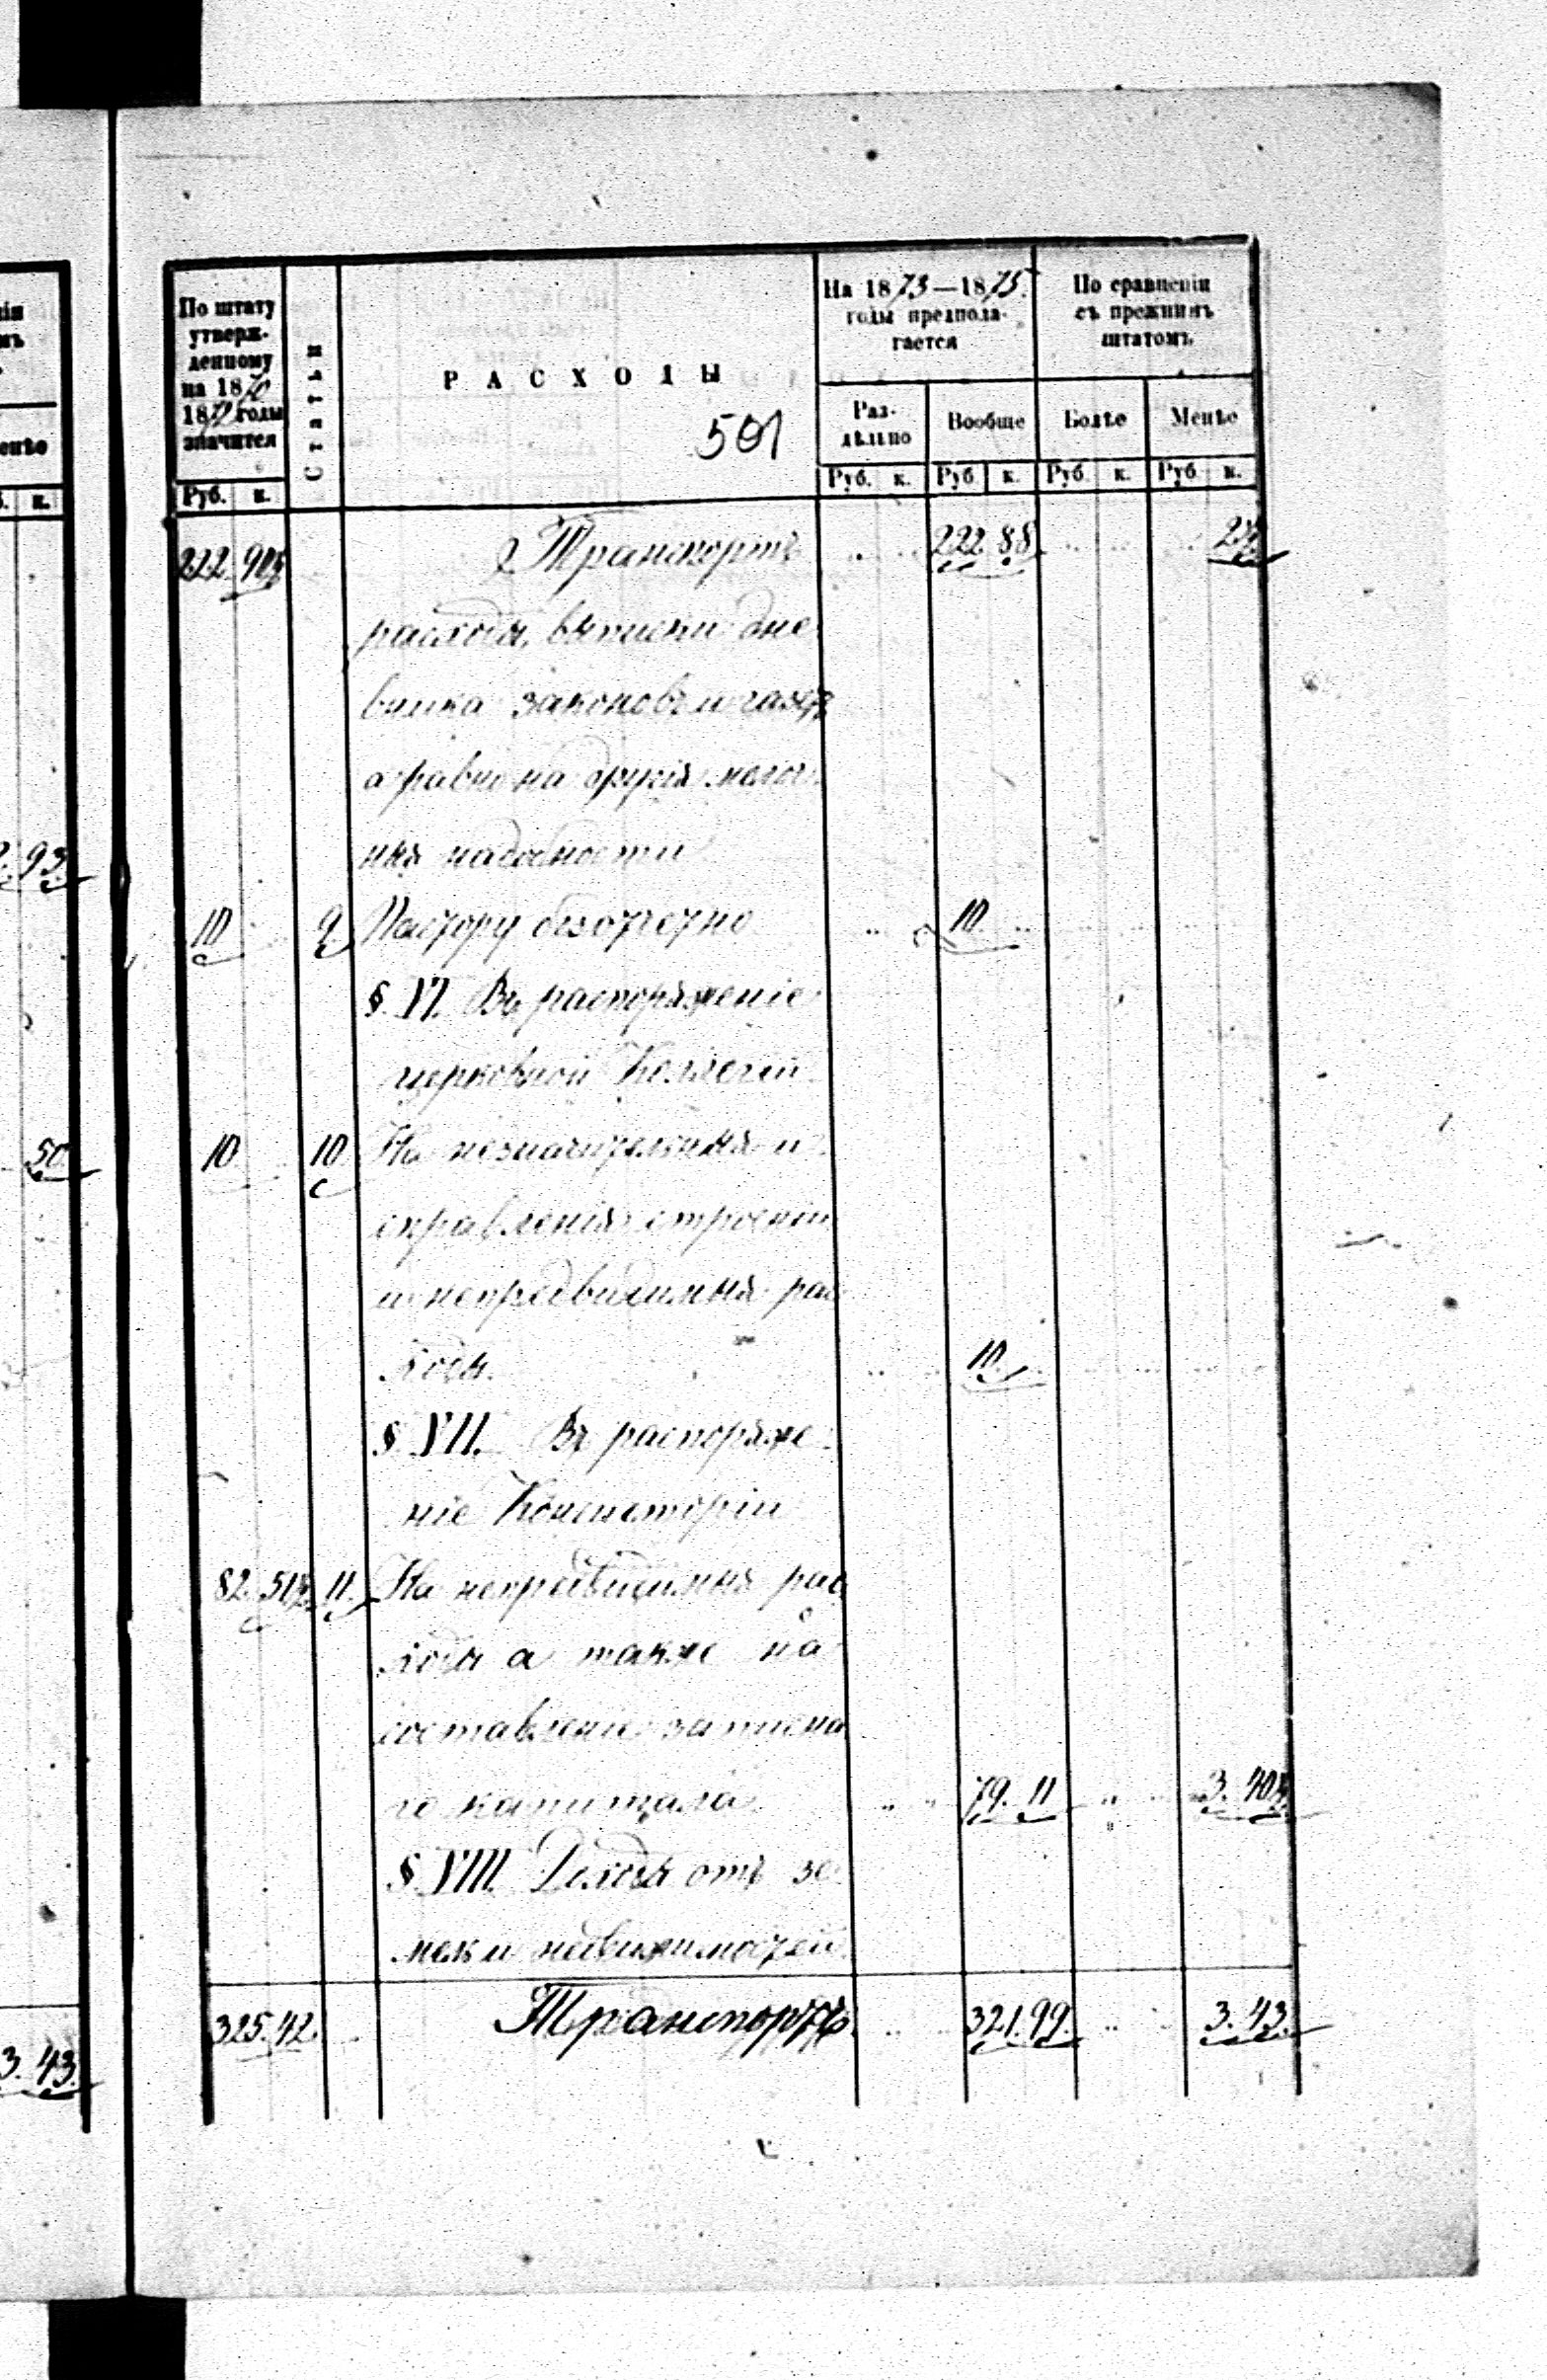 По штату
утверж-
денному
на 1870
1872 годы
значится
Статьи
РАСХОДЫ
501
На 1873—1875
годы предпола-
гается
По сравненіи
съ прежнимъ
штатомъ
Раз-
дѣльно
Вообще
Болѣе
Менѣе
Руб. к.
Руб. к.
Руб. к.
Руб. к.
Руб. к.
222 90½ Транспортъ 222 88 2½
расходы, выписки дне
вника законовъ и газетъ
а равно на другія мелоч
ныя надобности
10 9 Пастору безотчетно 10
§. VI. Въ распоряженіе
церковной Коллегіи
10 10 На незначительныя и
справленія строеній
и непредвидимыя рас
ходы. 10
§ VII. Въ распоряже
ніе Консисторіи
82. 51½ 11. На непредвидимыя рас
ходы а также на
составленіе запасна
го капитала 79. 11 3. 40½
§ VIII. Доходы отъ зе
мель и недвижимостей
325. 42. Транспортъ 321. 99. 3. 43.
нѣе
к.
93
50
3. 43.